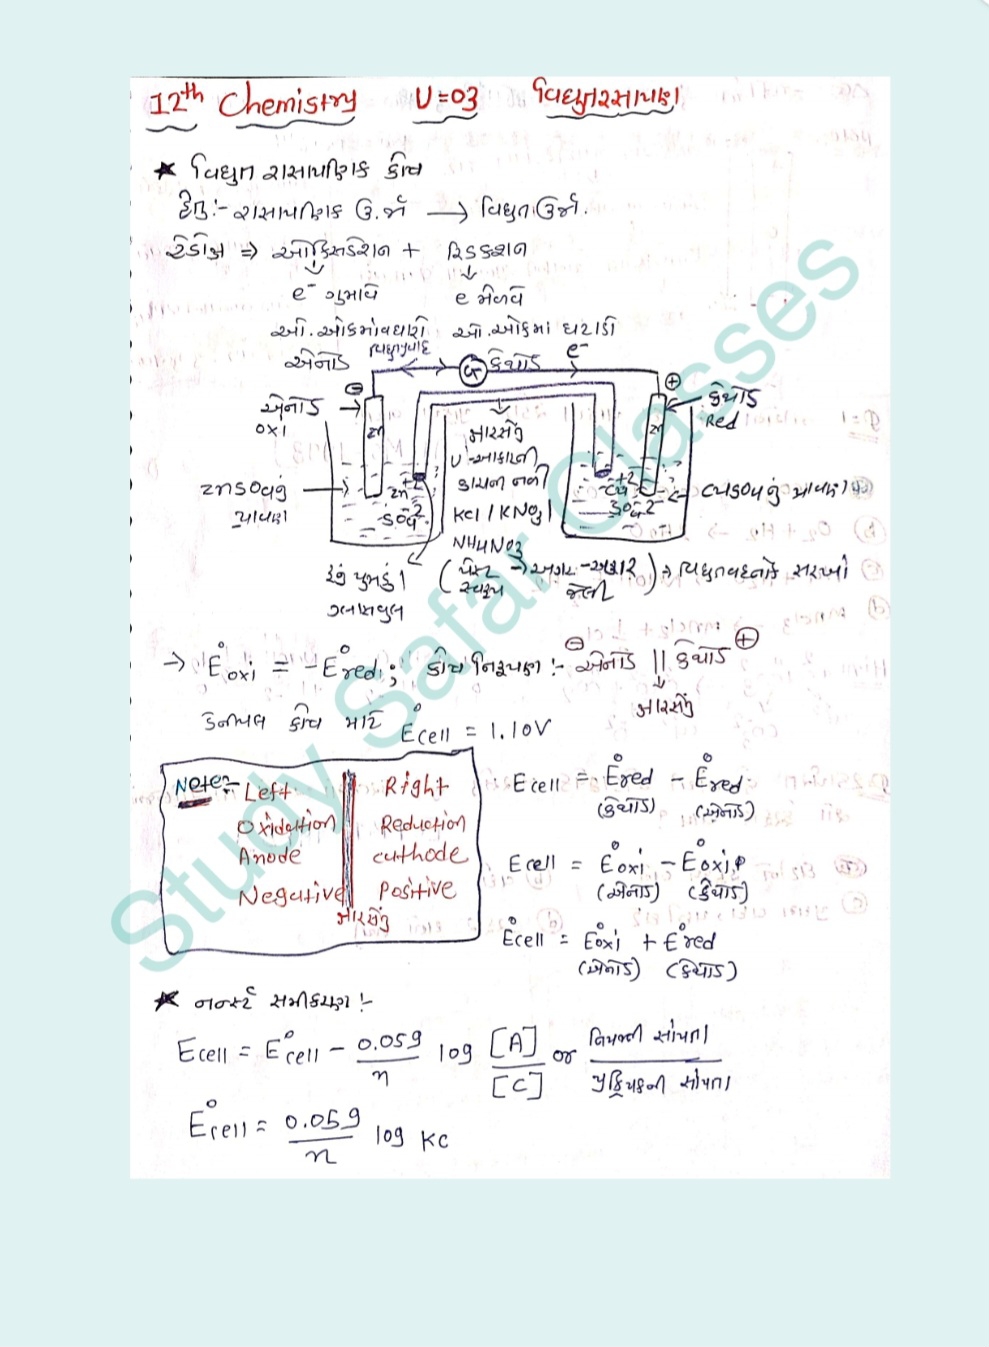 12th Chemistry U=03 વિદ્યુતરસાયણ
★ વિદ્યુત રાસાયણિક કોષ
હેતુ:- રાસાયણિક ઉર્જા → વિદ્યુત ઉર્જા.
રેડોક્ષ ⇒ ઓક્સિડેશન + રિડક્શન
e⁻ ગુમાવે e મેળવે
ઓ.આંકમાં વધારો ઓ.આંકમાં ઘટાડો
એનોડ કેથોડ
વિદ્યુતપ્રવાહ G e⁻
⊖ ⊕
એનોડ OXI
કેથોડ Red
Zn
ક્ષારસેતુ
U આકારની
કાચની નળી
KCl / KNO3 /
NH4NO3
ZnSO4નું દ્રાવણ
Zn+2
SO4-2
Cu+2
SO4-2
CuSO4નું દ્રાવણ
રૂનું પુમડું /
ગ્લાસવુલ
(પેસ્ટ સ્વરૂપ → અગર-અગર જેલી) → વિદ્યુતવહનાંક સરખો
→ E°oxi = -E°red; કોષ નિરૂપણ :- ⊖ એનોડ || કેથોડ ⊕
ક્ષારસેતુ
ડેનિયલ કોષ માટે E°cell = 1.10V
Note:- Left Right
Oxidation Reduction
Anode cathode
Negative Positive
ક્ષારસેતુ
Ecell = E°red - E°red
(કેથોડ) (એનોડ)
Ecell = E°oxi - E°oxi
(એનોડ) (કેથોડ)
E°cell = E°oxi + E°red
(એનોડ) (કેથોડ)
★ નર્ન્સ્ટ સમીકરણ :-
Ecell = E°cell - 0.059/n log [A]/[C] or નિપજની સાંદ્રતા/પ્રક્રિયકની સાંદ્રતા
E°cell = 0.059/n log KC
Study Safar Classes